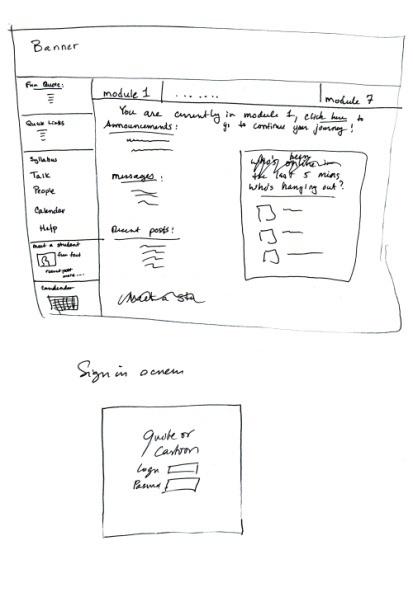 Banner
Fun Quote:
Quick Links
Syllabus
Talk
People
Calendar
Help
meet a student
fun fact
recent post
more....
module 1
.......
module 7
You are currently in module 1, click here to
go to continue your journey!
Announcements:
messages:
Recent posts:
who's been
the last 5 mins
Who's hanging out?
Sign in screen
Quote or
Cartoon
Login